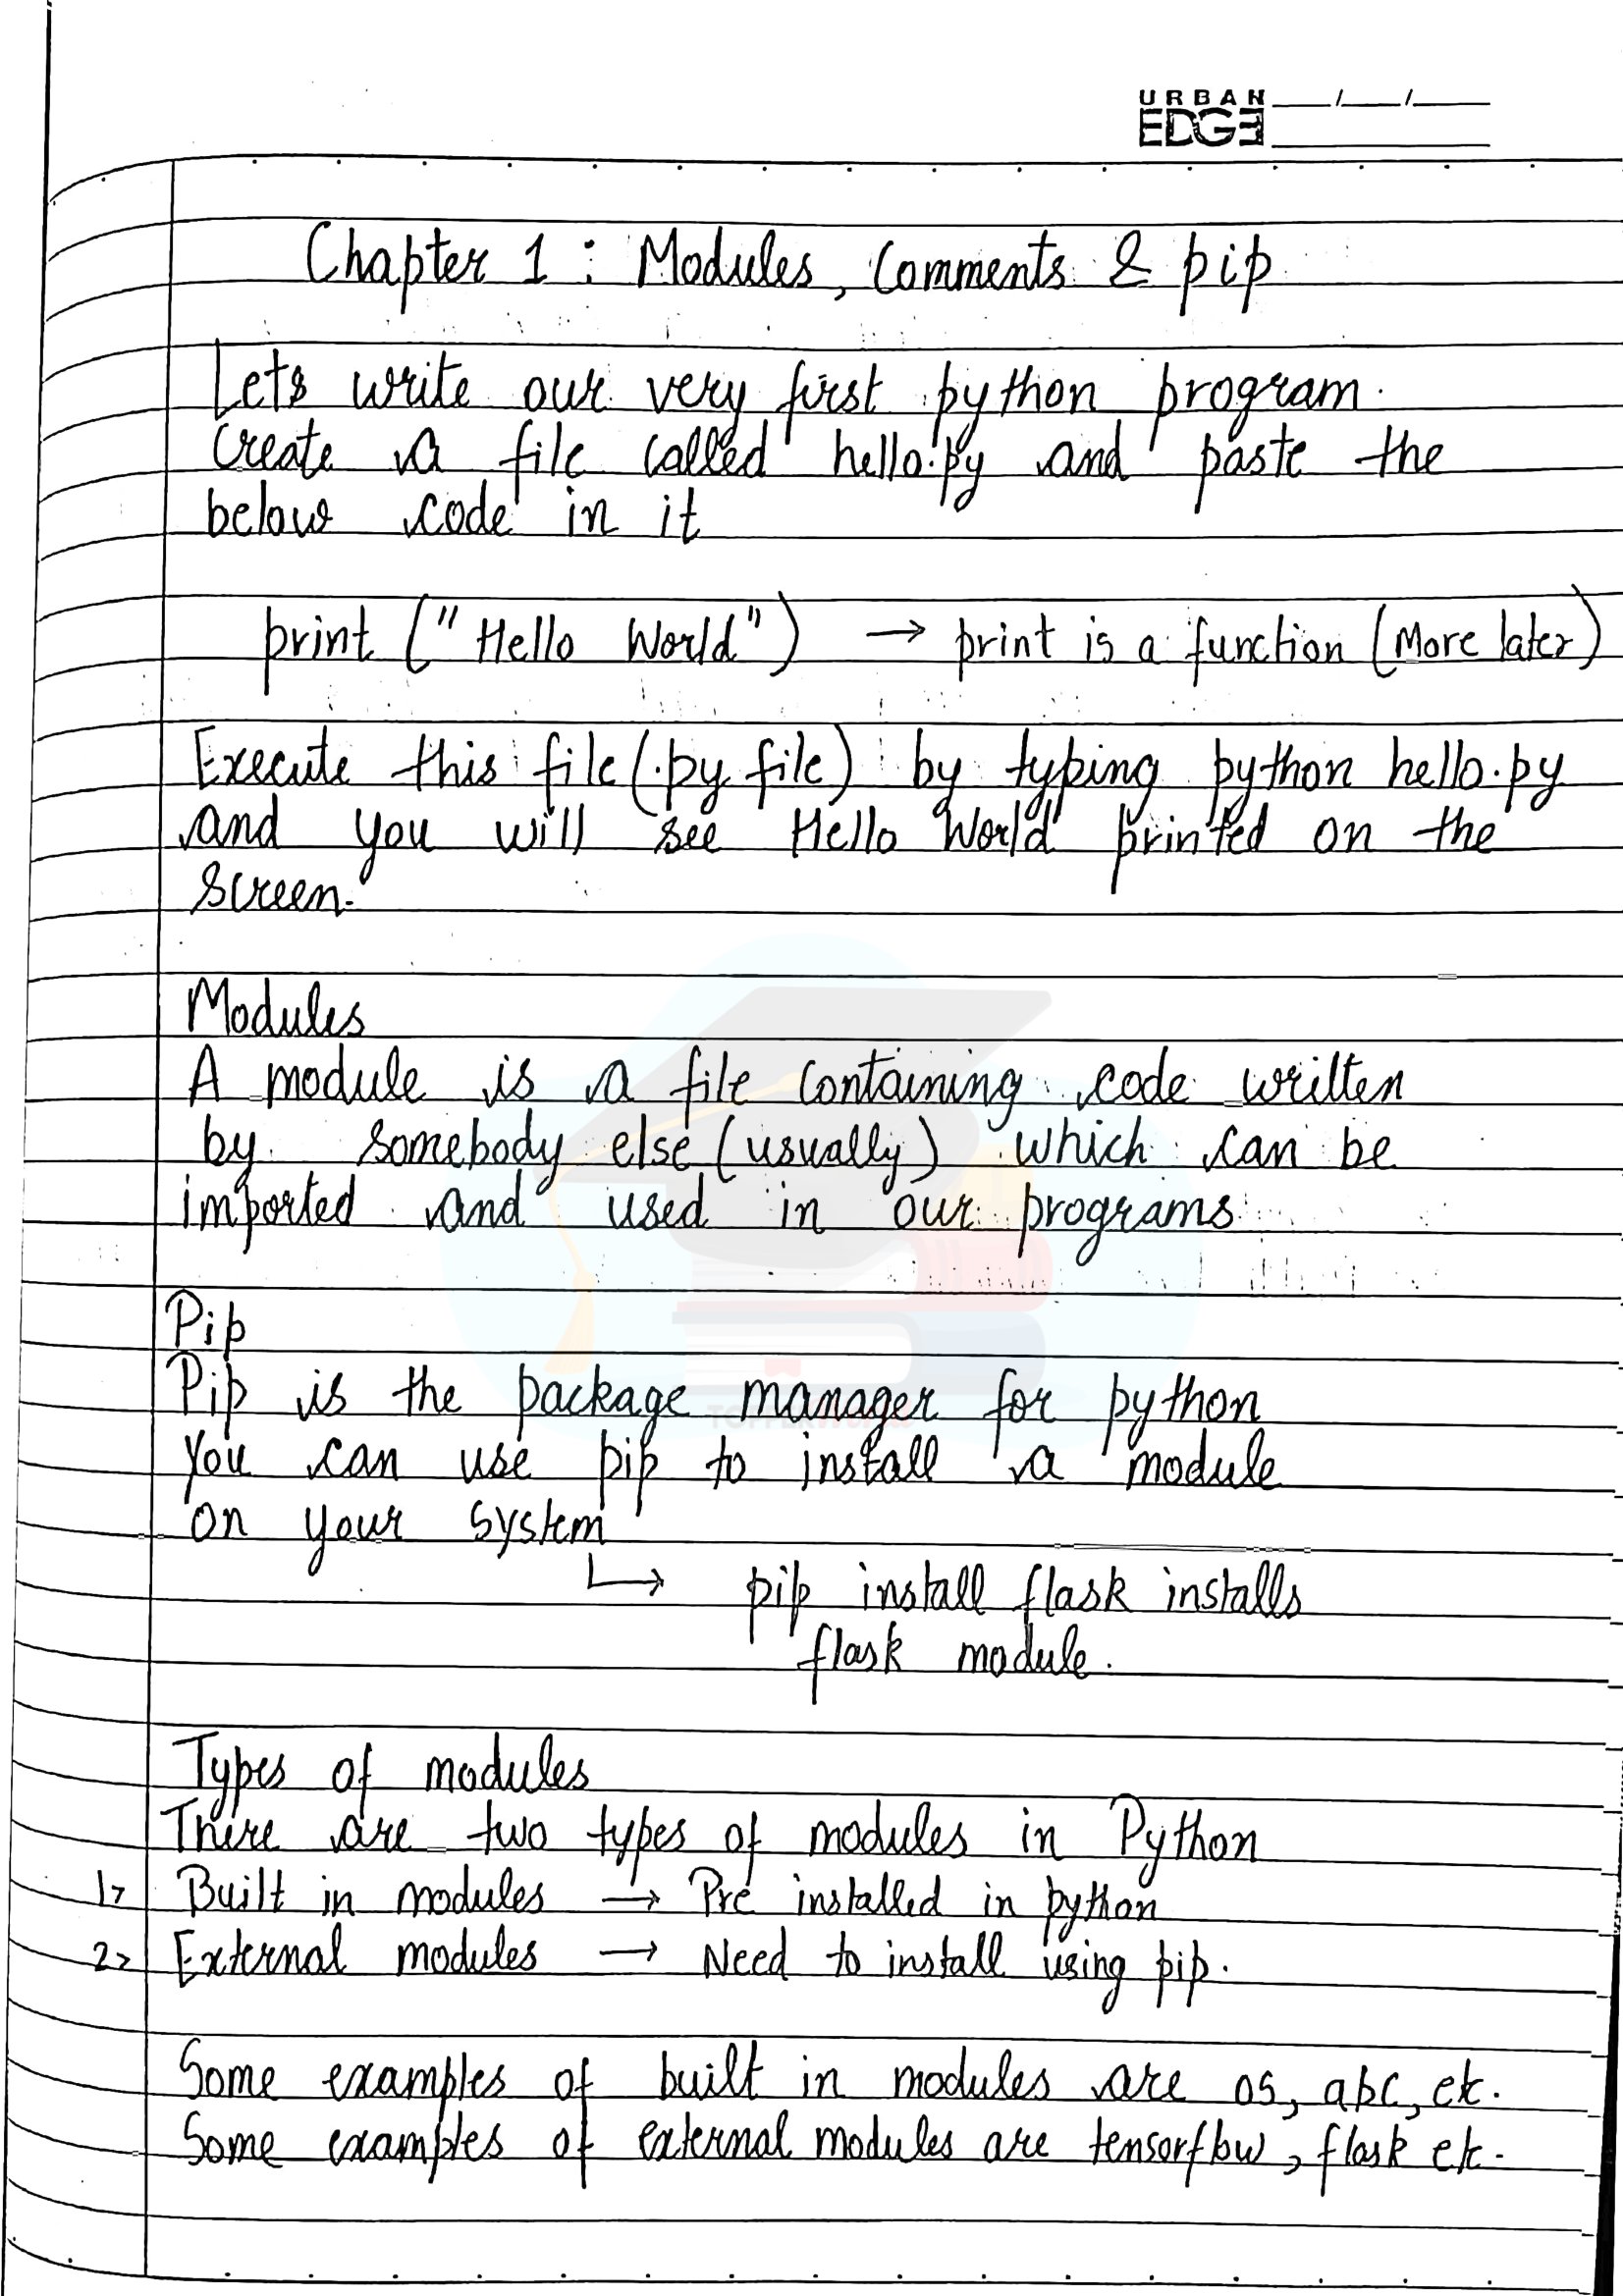 URBAN
EDGE
Chapter 1 : Modules, Comments & pip
Lets write our very first python program.
Create a file called hello.py and paste the
below code in it
print ("Hello World") → print is a function (More later)
Execute this file (.py file) by typing python hello.py
and you will see Hello World printed on the
Screen.
Modules
A module is a file containing code written
by somebody else (usually) which can be
imported and used in our programs
Pip
Pip is the package manager for python
You can use pip to install a module
on your system
↳ pip install flask installs
flask module.
Types of modules
There are two types of modules in Python
1> Built in modules → Pre installed in python
2> External modules → Need to install using pip.
Some examples of built in modules are os, abc, etc.
Some examples of external modules are tensorflow, flask etc.